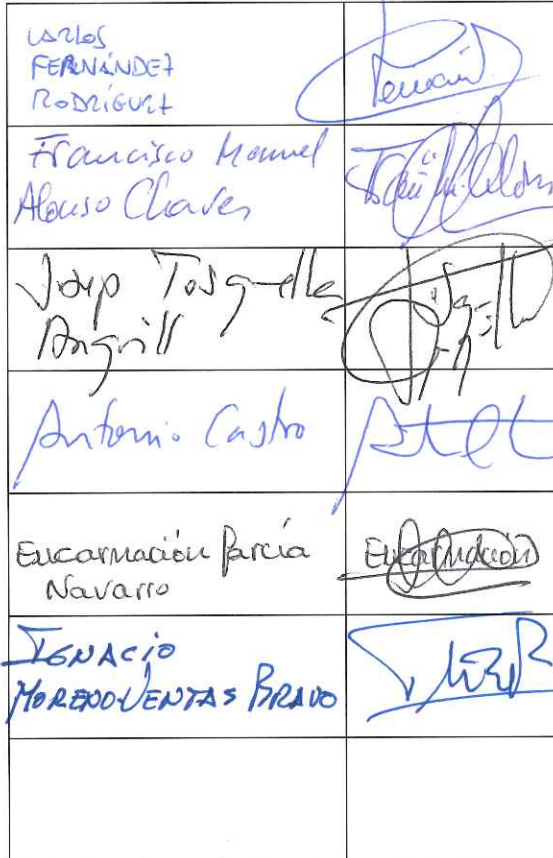 CARLOS
FERNÁNDEZ
RODRÍGUEZ
Francisco Manuel
Alonso Chaves
Josep Tosquella
Angrill
Antonio Castro
Encarnación García
Navarro
Encarnación
IGNACIO
MORENO-VENTAS BRAVO